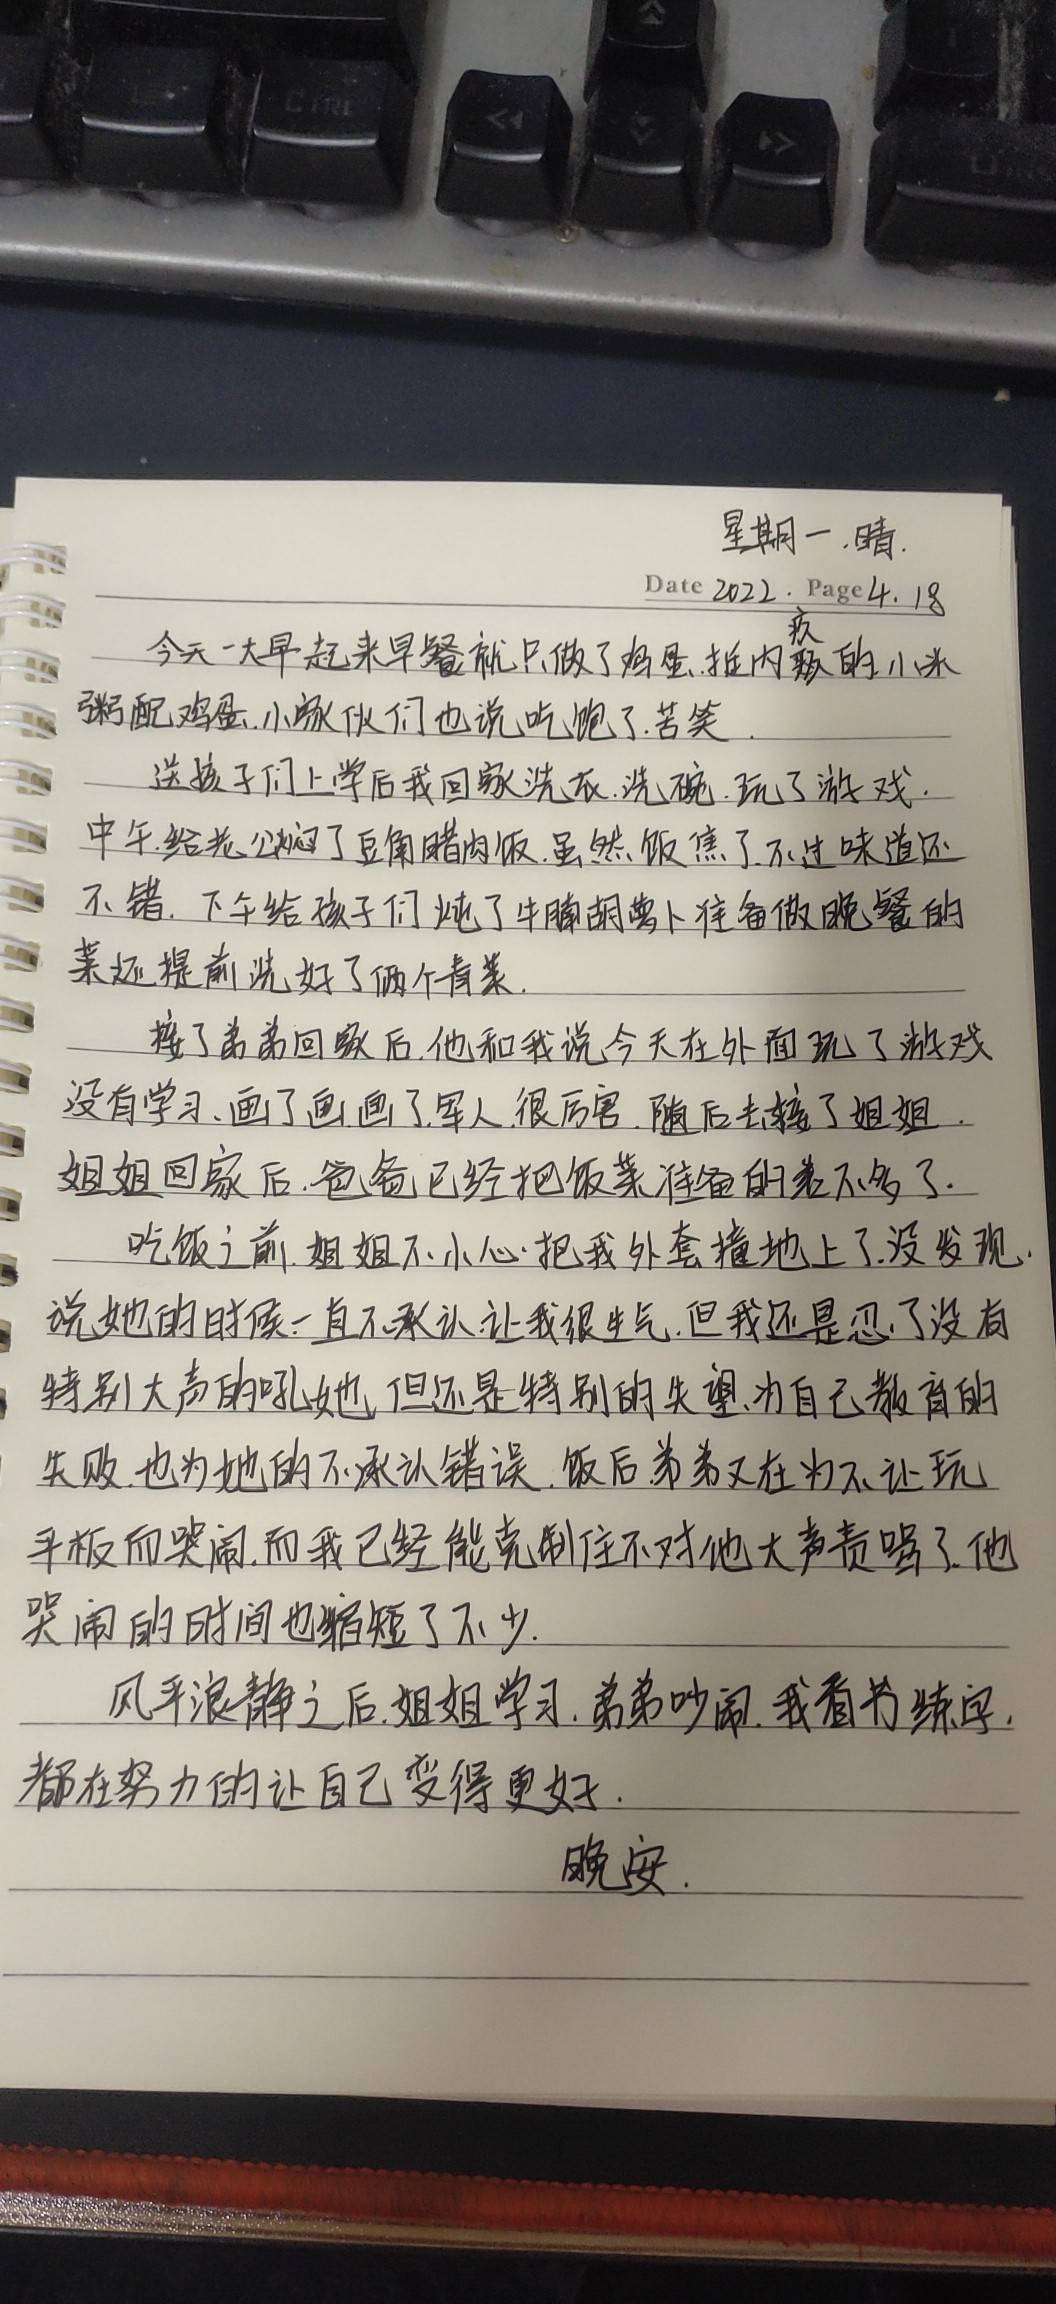 CTRL
星期一.晴.
Date 2022. Page 4.18
疚
今天一大早起来早餐就只做了鸡蛋.挺内的.小米
粥配鸡蛋.小家伙们也说吃饱了.苦笑.
送孩子们上学后我回家洗衣.洗碗.玩了游戏.
中午.给老公焖了豆角腊肉饭.虽然饭焦了.不过味道还
不错.下午给孩子们炖了牛腩胡萝卜准备做晚餐的
菜还提前洗好了俩个青菜.
接了弟弟回家后.他和我说今天在外面玩了游戏
没有学习、画了画.画了军人.很厉害.随后去接了姐姐.
姐姐回家后.爸爸已经把饭菜准备的差不多了.
吃饭之前.姐姐不小心把我外套撞地上了.没发现.
说她的时侯一直不承认.让我很生气.但我还是忍了没有
特别大声的吼她.但还是特别的失望.为自己教育的
失败.也为她的不承认错误.饭后弟弟又在为不让玩
平板而哭闹.而我已经能克制住不对他大声责喝了.他
哭闹的时间也缩短了不少.
风平浪静之后.姐姐学习.弟弟吵闹.我看书练字.
都在努力的让自己变得更好.
晚安.